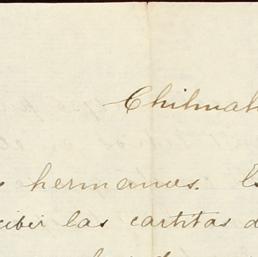 Chihuah
s hermanos. Es
cibir las cartitas d